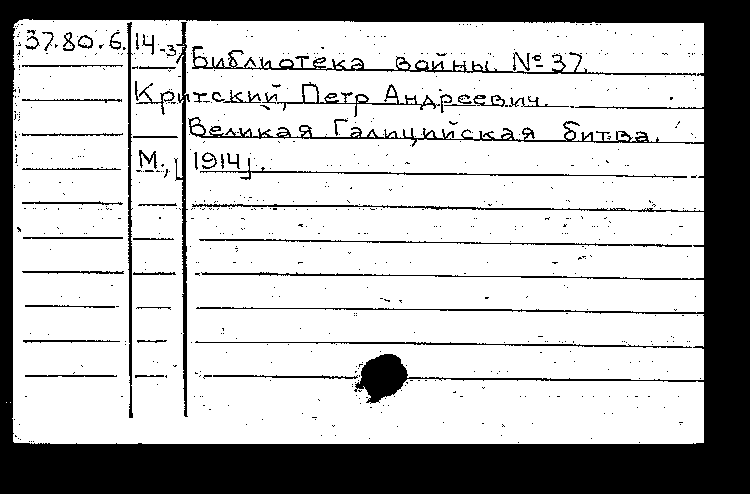 37.80.6. 14-37 Библиотека войны. № 37.
Критский, Петр Андреевич.
Великая Галицийская битва.
М., [1914].